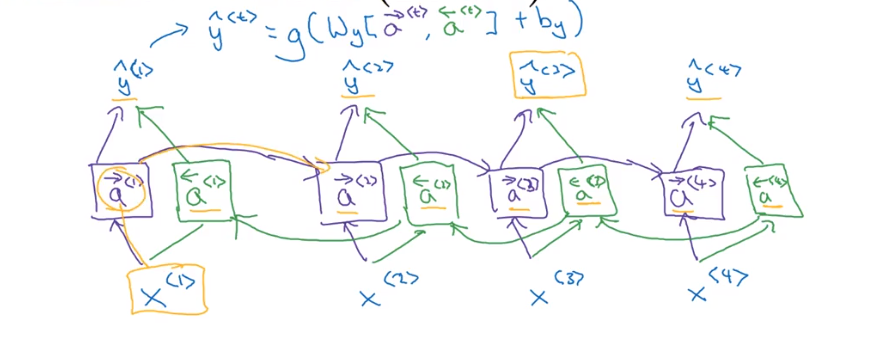 ŷ<t> = g(Wy[a→<t>, a←<t>] + by)
ŷ<1> ŷ<2> ŷ<3> ŷ<4>
a→<1> a←<1> a→<2> a←<2> a→<3> a←<3> a→<4> a←<4>
x<1> x<2> x<3> x<4>